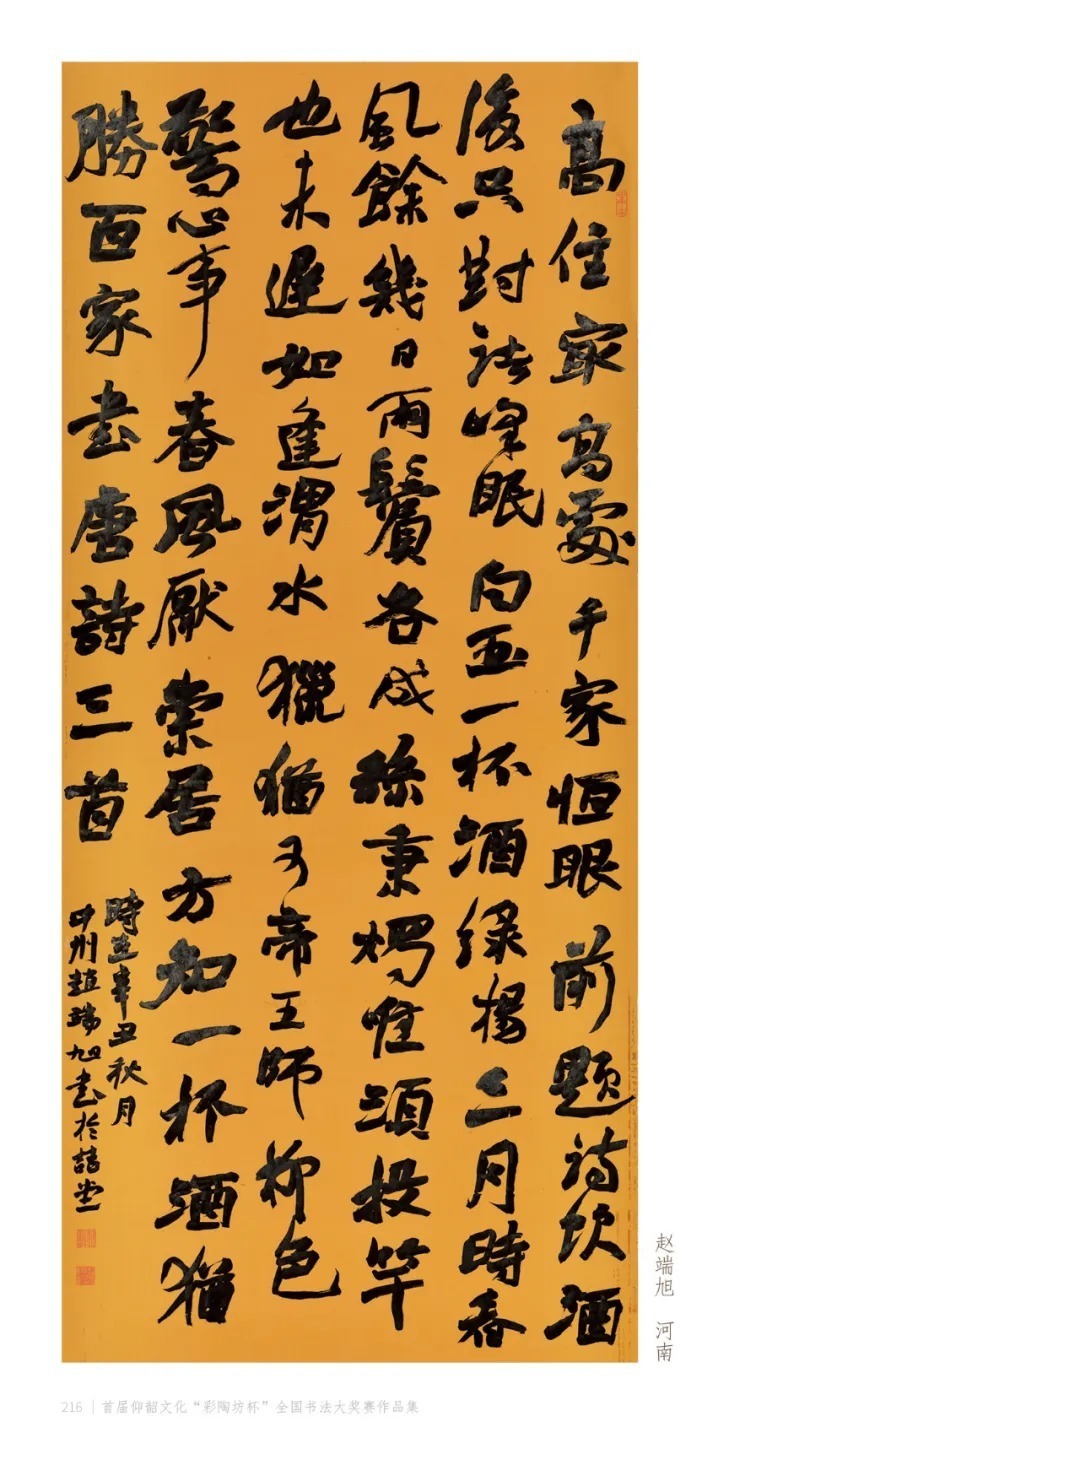 高住冣高處千家恒眼前题诗饮酒
後只對诸峰眠白玉一杯酒绿楊三月時春
風餘幾日兩鬢各成絲秉燭唯須投竿
也未遲如逢渭水獵猶可帝王師柳色
驚心事春風厭索居方知一杯酒猶
勝百家書唐詩三首
時在辛丑秋月
中州趙端旭書於堂
赵端旭 河南
216 | 首届仰韶文化“彩陶坊杯”全国书法大奖赛作品集